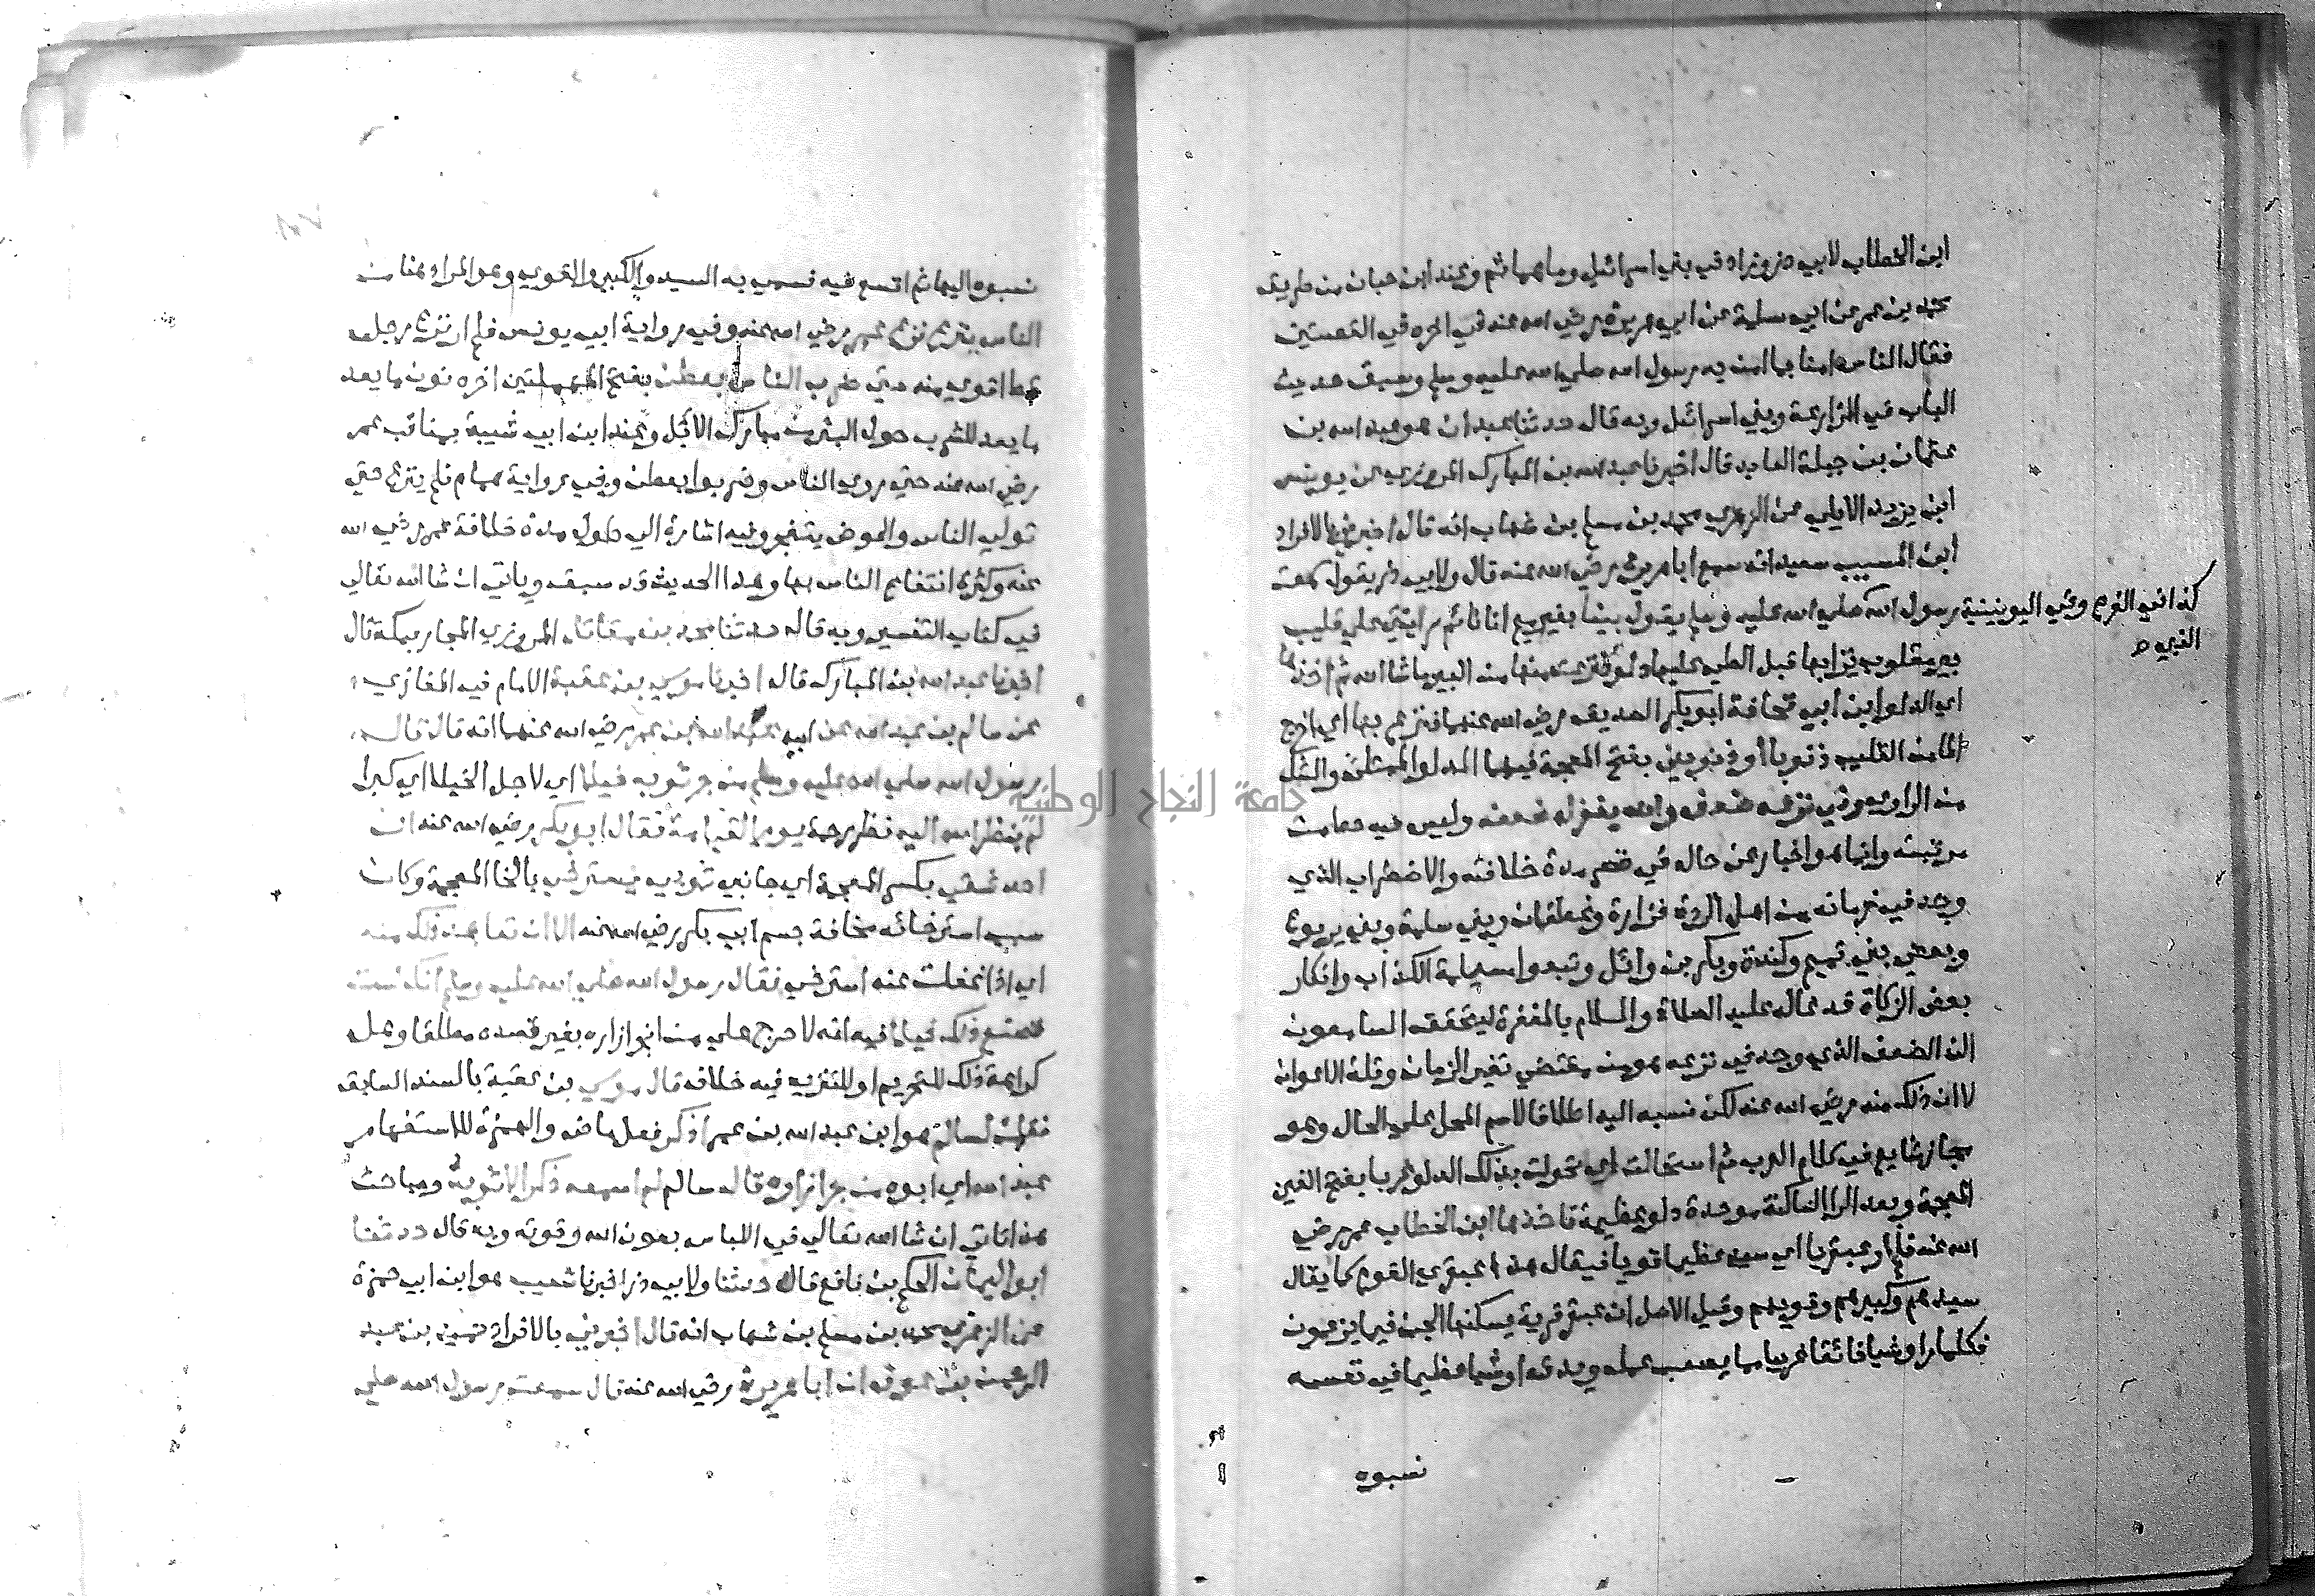 ابن الخطاب لابي ذر وزاد في بني اسرائيل وما هما ثم وعند ابن حبان من طريق
محمد بن عمر عن ابي سلمة عن ابي هريرة رضي الله عنه في اخره في القصتين
فقال الناس امنا بما امن به رسول الله صلي الله عليه وسلم وسبق حديث
الباب في المزارعة وبني اسرائيل وبه قال حدثنا عبدان هو عبد الله بن
عثمان بن جبلة العابد قال اخبرنا عبد الله بن المبارك المروزي عن يونس
ابن يزيد الايلي عن الزهري محمد بن مسلم بن شهاب انه قال اخبرني بالافراد
ابن المسيب سعيد انه سمع ابا هريرة رضي الله عنه قال ولابي ذر يقول سمعت
رسول الله صلي الله عليه وسلم يقول بينا بغير ميم انا نائم رايتني علي قليب
كذا في الفرع وفي اليونينية
النبي صـ
بير مقلوب ترابها قبل الطي عليها دلو فنزعت منها من البير ماشا الله ثم اخذها
اي الدلو ابن ابي قحافة ابو بكر الصديق رضي الله عنهما فنزع بها اي اخرج
الما من القليب ذنوبا او ذنوبين بفتح المعجمة فيهما الدلو الممتلئ والشك
من الراوي وفي نزعه ضعف والله يغفر له ضعفه وليس فيه حط من
مرتبته وانما هو اخبار عن حاله في قصر مدة خلافته والاضطراب الذي
وجد في زمانه من اهل الردة فزارة وغطفان وبني سلمة وبني يربوع
وبعض بني تميم وكندة وبكر بن وائل وتبعوا مسيلمة الكذاب وانكار
بعض الزكاة فدعا له عليه الصلاة والسلام بالمغفرة ليتحقق السامعون
ان الضعف الذي وجد في نزعه هو من مقتضي تغير الزمان وقلة الاعوان
لا ان ذلك منه رضي الله عنه لكن نسبه اليه اطلاقا لاسم المحل علي الحال وهو
مجاز شايع في كلام العرب ثم استحالت اي تحولت بذلك الدلو غربا بفتح الغين
المعجمة وبعد الرا الساكنة موحدة دلو عظيمة فاخذها ابن الخطاب عمر رضي
الله عنه فلم ار عبقريا اي سيدا عظيما قويا فيقال هذا عبقري القوم كما يقال
سيدهم وكبيرهم وقويهم وقيل الاصل ان عبقر قرية يسكنها الجن فيما يزعمون
فكلما راوا شيا فائقا غريبا مما يصعب عمله ويدق او شيا عظيما في نفسه
نسبوه
نسبوه اليها ثم اتسع فيه فسمي به السيد والكبير والقوي وهو المراد هنا من
الناس ينزع نزع عمر رضي الله عنه وفي رواية ابي يونس فلم ار نزع رجل
قط اقوي منه حتي ضرب الناس بعطن بفتح المهملتين اخره نون ما يعد
ما يعد للشرب حول البئر من مبارك الابل وعند ابن ابي شيبة بمناقب عمر
رضي الله عنه حتي روي الناس وضربوا بعطن وفي رواية همام فلم ينزع حتي
تولي الناس والحوض يتفجر وفيه اشارة الي طول مدة خلافة عمر رضي الله
عنه وكثرة انتفاع الناس بها وهذا الحديث قد سبق وياتي ان شا الله تعالي
في كتاب التعبير وبه قال حدثنا محمد بن مقاتل المروزي المجاور بمكة قال
اخبرنا عبد الله بن المبارك قال اخبرنا موسي بن عقبة الامام في المغازي
عن سالم بن عبد الله عن ابيه عبد الله بن عمر رضي الله عنهما انه قال قال
رسول الله صلي الله عليه وسلم من جر ثوبه خيلا اي لاجل الخيلا اي كبرا
لم ينظر الله اليه نظر رحمة يوم القيامة فقال ابو بكر رضي الله عنه ان
احد شقي بكسر المعجمة اي جانبي ثوبي يسترخي بالخا المعجمة وكان
سبب استرخائه نحافة جسم ابي بكر رضي الله عنه الا ان تعاهد ذلك منه
اي اذا غفلت عنه استرخي فقال رسول الله صلي الله عليه وسلم انك لست
تصنع ذلك خيلا فيه انه لا حرج علي من انجر ازاره بغير قصده مطلقا وهل
كراهة ذلك للتحريم او للتنزيه فيه خلاف قال موسي بن عقبة بالسند السابق
فقلت لسالم هو ابن عبد الله بن عمر اذكر فعل ماض والهمزة للاستفهام
عبد الله اي ابوه من جر ازاره قال سالم لم اسمعه ذكر الا ثوبه ومباحث
هذا تاتي ان شا الله تعالي في اللباس بعون الله وقوته وبه قال حدثنا
ابو اليمان الحكم بن نافع قال حدثنا ولابي ذر اخبرنا شعيب هو ابن ابي حمزة
عن الزهري محمد بن مسلم بن شهاب انه قال اخبرني بالافراد حميد بن عبد
الرحمن بن عوف ان ابا هريرة رضي الله عنه قال سمعت رسول الله صلي
جامعة النجاح الوطنية